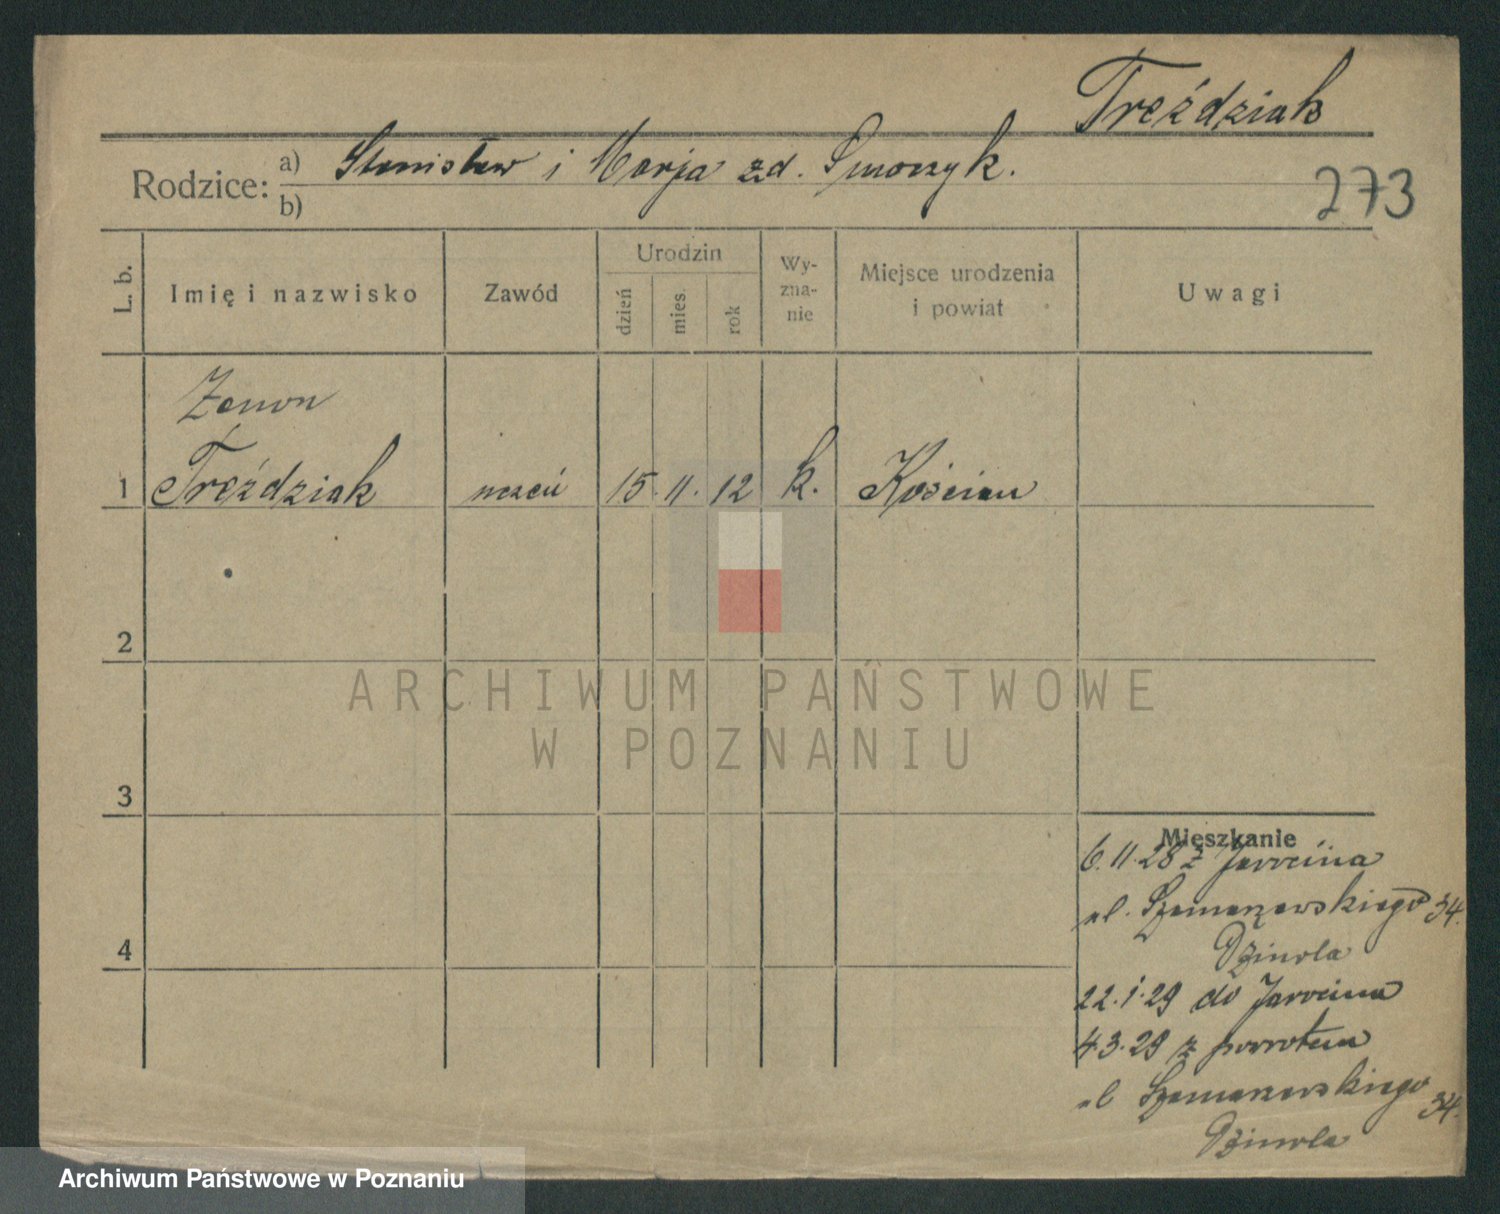 Treździak
Rodzice: a) Stanisław i Marja zd. Smoczyk.
b)
273
L. b.
Imię i nazwisko
Zawód
Urodzin
dzień
mies.
rok
Wy-
zna-
nie
Miejsce urodzenia
i powiat
Uwagi
Zenon
1 Treździak uczeń 15. 11. 12 k. Kościan
2
ARCHIWUM PAŃSTWOWE
W POZNANIU
3
Mieszkanie
6.11.28 z Jarocina
ul. Szamarzewskiego 34.
4
22.1.29 do Jarocina
4.3.29 z powrotem
ul Szamarzewskiego 34.
Archiwum Państwowe w Poznaniu